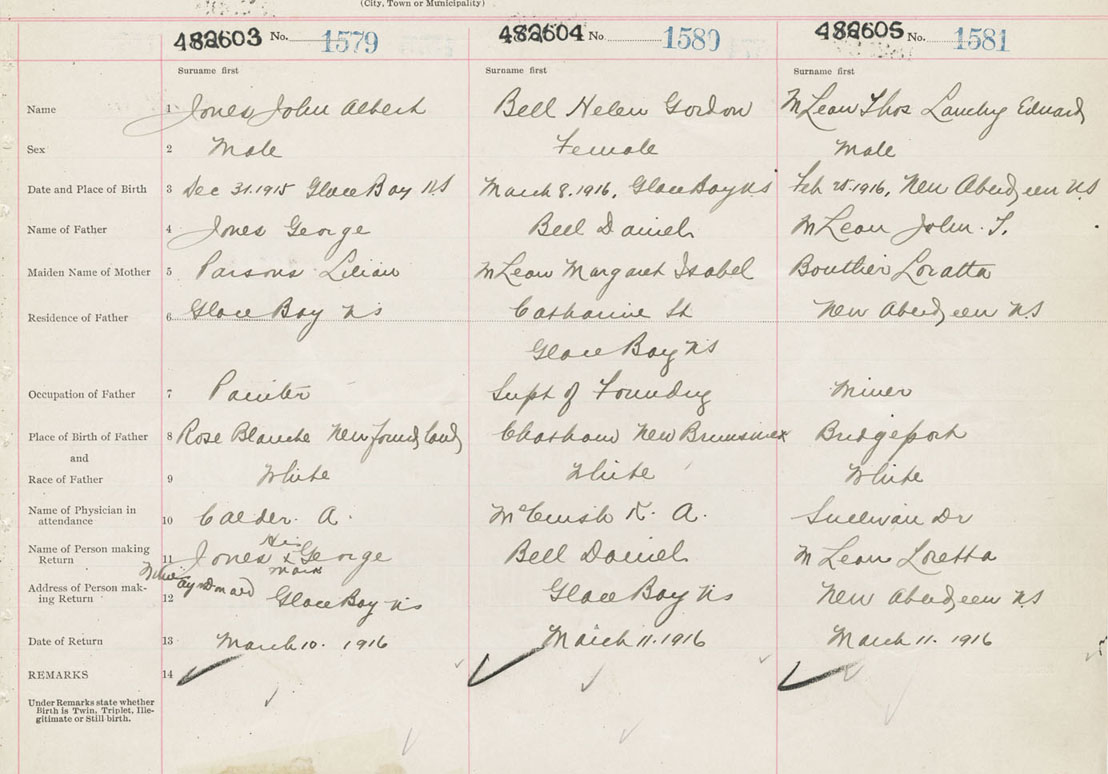 (City, Town or Municipality)
482603 No. 1579 482604 No. 1580 482605 No. 1581
Surname first Surname first Surname first
Name 1 Jones John Albert Bell Helen Gordon McLean Thos Edward
Sex 2 Male Female Male
Date and Place of Birth 3 Dec 31. 1915 Glace Bay NS March 8. 1916, Glace Bay NS Feb 25. 1916, New Aberdeen NS
Name of Father 4 Jones George Bell Daniel McLean John
Maiden Name of Mother 5 Parsons Lilian McLean Margaret Isabel Bouthier Loratta
Residence of Father 6 Glace Bay NS Catharine St New Aberdeen NS
Glace Bay NS
Occupation of Father 7 Painter Supt of Foundry Miner
Place of Birth of Father 8 Rose Blanche Newfoundland Chatham New Brunswick Bridgeport
and
Race of Father 9 White White White
Name of Physician in
attendance 10 Calder. A. K. A. Sullivan Dr
Name of Person making
Return 11 Jones His x Mark George Bell Daniel McLean Loretta
Address of Person mak-
ing Return 12 Glace Bay NS Glace Bay NS New Aberdeen NS
Date of Return 13 March 10. 1916 March 11. 1916 March 11. 1916
REMARKS 14
Under Remarks state whether
Birth is Twin, Triplet, Ille-
gitimate or Still birth.